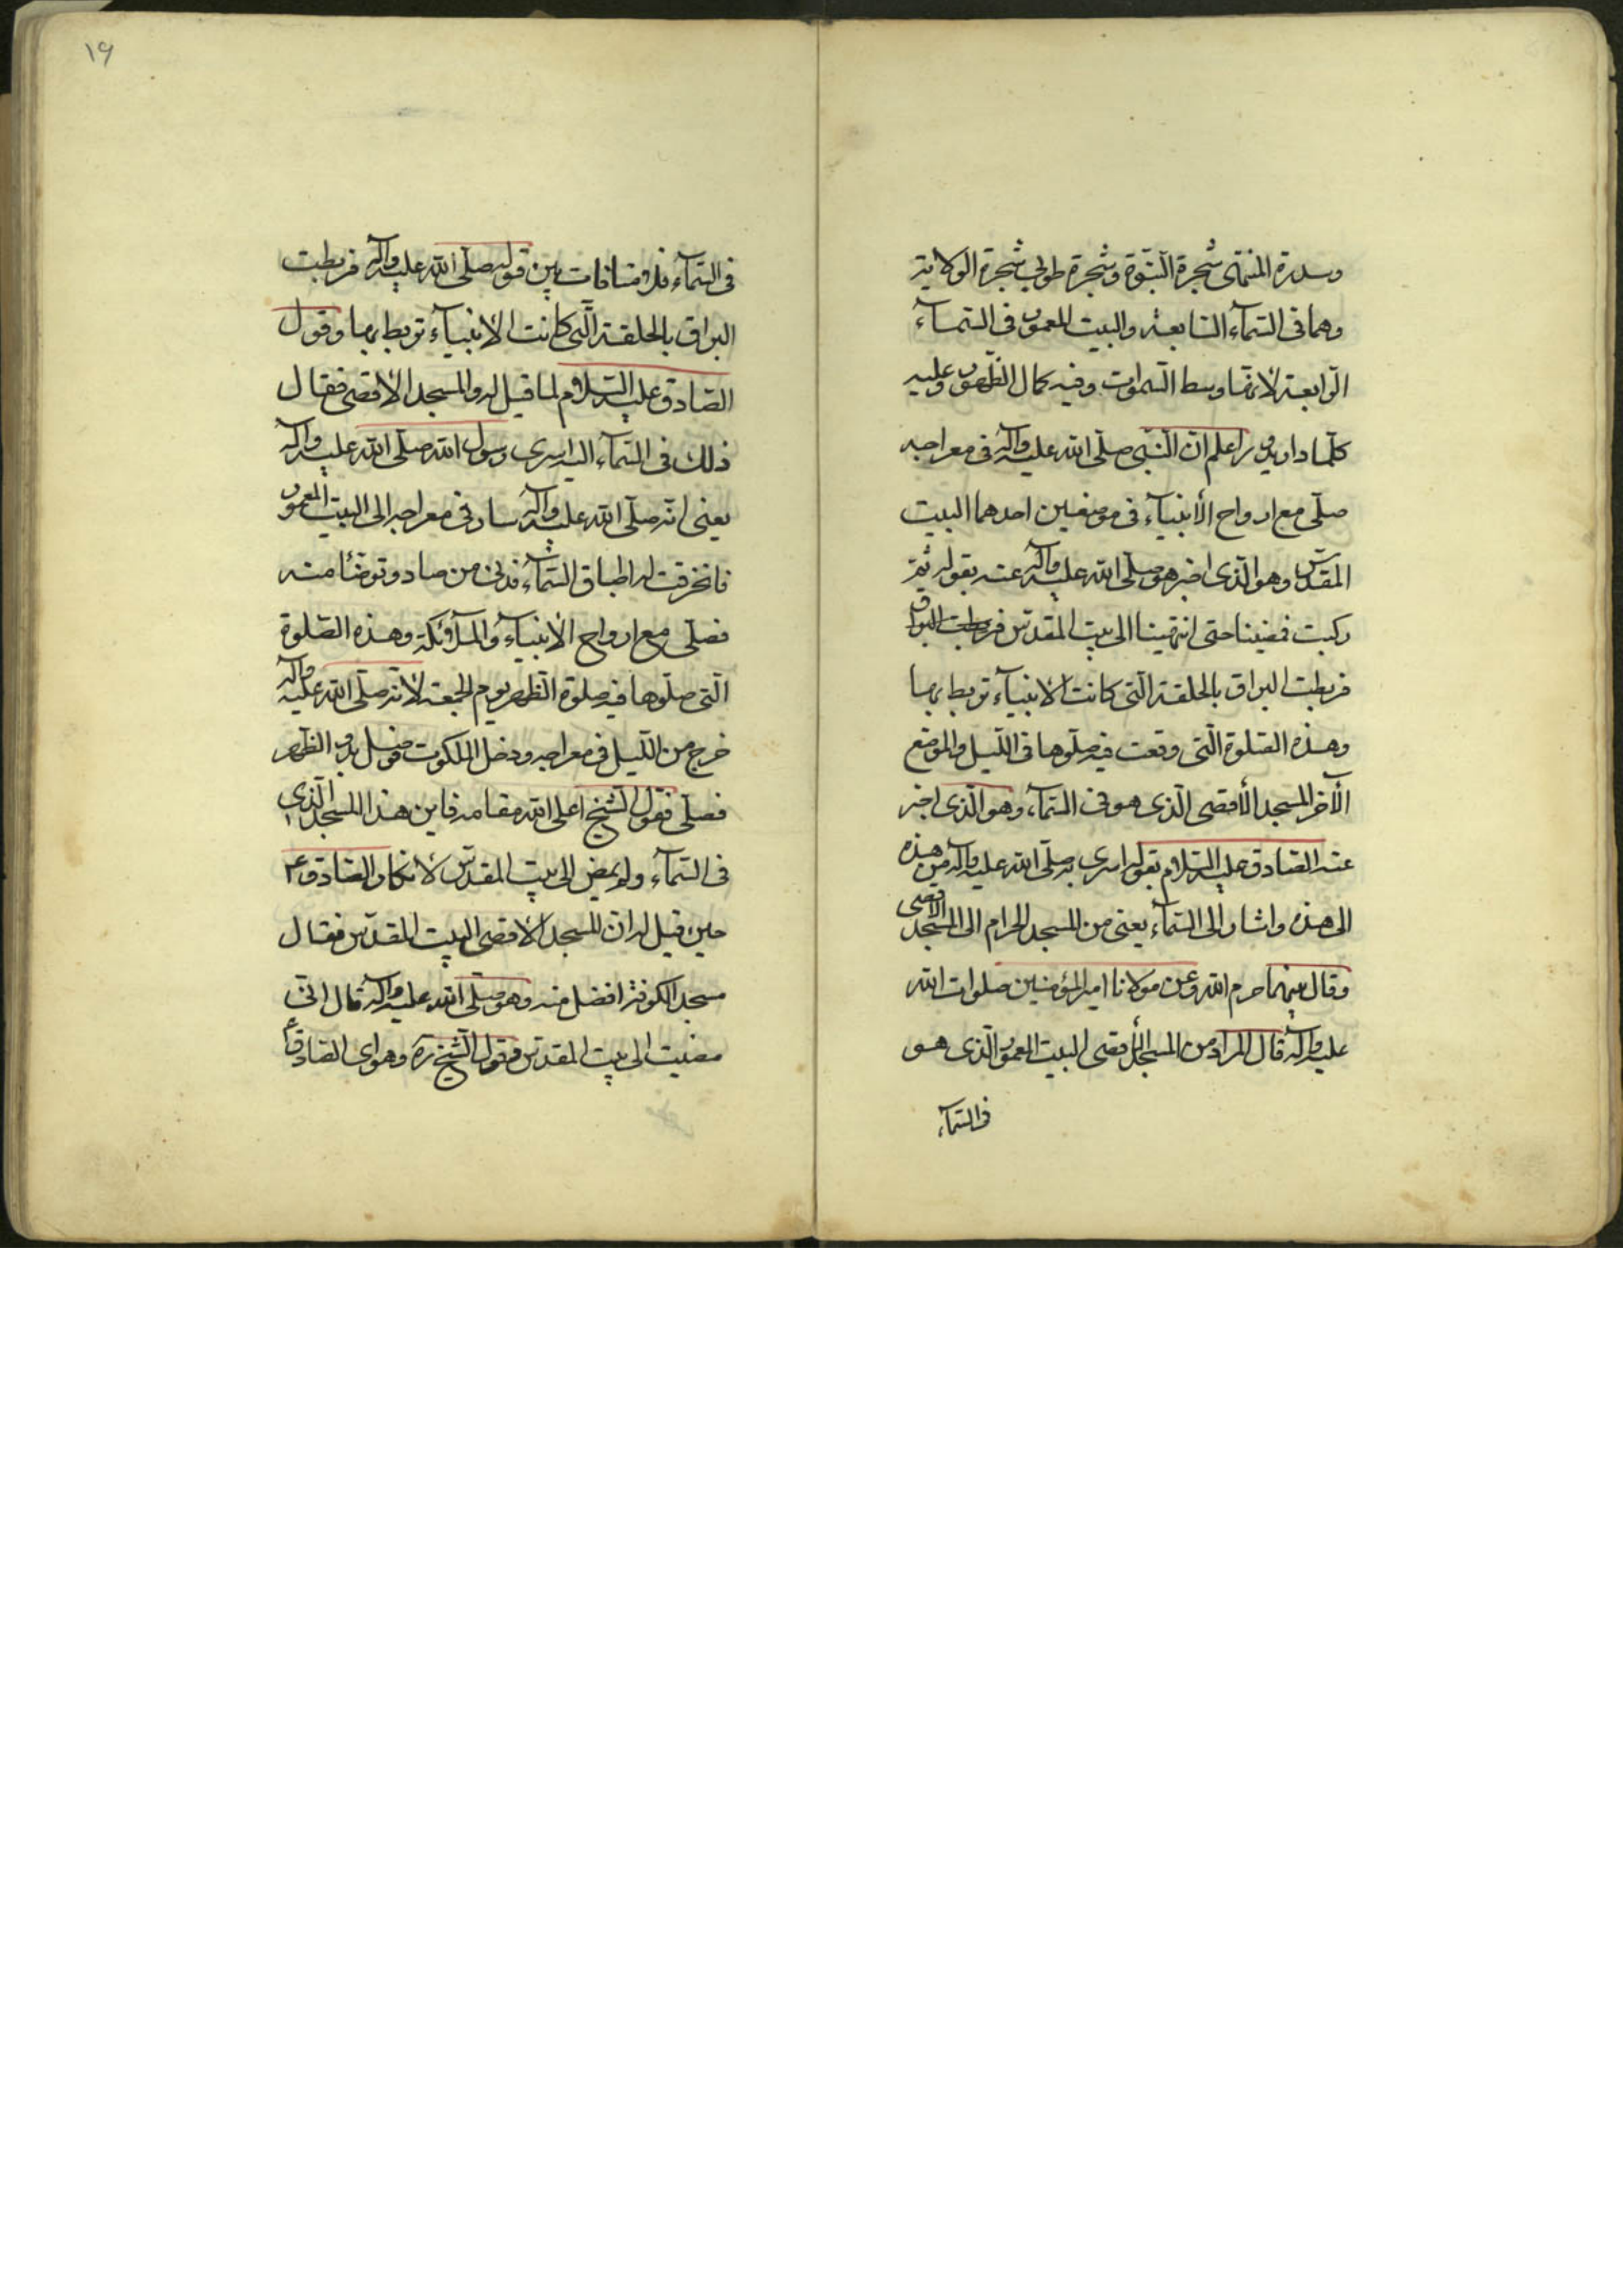 وسدرة المنتهى شجرة النّبوّة وشجرة طوبى شجرة الولاية
وهما فى السّمآء السّابعة والبيت المعمور فى السّمآء
الرّابعة لانها وسط السّموات وفيه كمال الظّهور وعليه
كلّما دار يدور اعلم انّ النّبى صلّى الله عليه وآله فى معراجه
صلّى مع ارواح الأنبيآء فى موضعين احدهما البيت
المقدّس وهو الّذى اخبر هو صلّى الله عليه وآله عنه بقوله ثمّ
ركبت فمضينا حتى انتهينا الى بيت المقدّس فربطت البراق
فربطت البراق بالحلقة الّتى كانت الانبيآء تربط بها
وهذه الصّلوة الّتى وقعت فيه صلّوها فى اللّيل والموضع
الآخر المسجد الأقصى الّذى هو فى السّمآء وهو الّذى اخبر
عنه الصّادق عليه السّلام بقوله اسرى به صلّى الله عليه وآله من هذه
الى هذه واشار الى السّمآء يعنى من المسجد الحرام الى المسجد الاقصى
وقال بينهما حرم الله وعن مولانا امير المؤمنين صلوات الله
عليه وآله قال المراد من المسجد الأقصى البيت المعمور الّذى هو
فى السّمآء
١٩
فى السّمآء فلا منافات بين قوله صلّى الله عليه وآله فربطت
البراق بالحلقة الّتى كانت الانبيآء تربط بها وقول
الصّادق عليه السّلام لما قيل له والمسجد الاقصى فقال
ذلك فى السّمآء اليه اسرى رسول الله صلّى الله عليه وآله
يعنى انّه صلّى الله عليه وآله سار فى معراجه الى البيت المعمور
فانخرقت له اطباق السّمآء فدنى من صاد وتوضّأ منه
فصلّى مع ارواح الأنبيآء والملآئكة وهذه الصّلوة
الّتى صلّوها فيه صلوة الظّهر يوم الجمعة لانّه صلّى الله عليه وآله
خرج من اللّيل فى معراجه ودخل الملكوت فوصل الظّهر
فصلّى فقول الشّيخ اعلى الله مقامه فاين هذا المسجد الّذى
فى السّمآء ولم يمض الى بيت المقدّس لانكار الصّادق ع
حين قيل له ان المسجد الأقصى البيت المقدّس فقال
مسجد الكوفة افضل منه وهو صلّى الله عليه وآله قال انّى
مضيت الى بيت المقدّس فقول الشّيخ ره وهو اى الصّادق ع